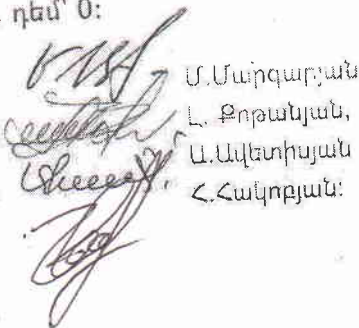 դեմ 0:
Մ.Մարգարյան
Լ. Քոթանյան,
Ա.Ավետիսյան
Հ.Հակոբյան: